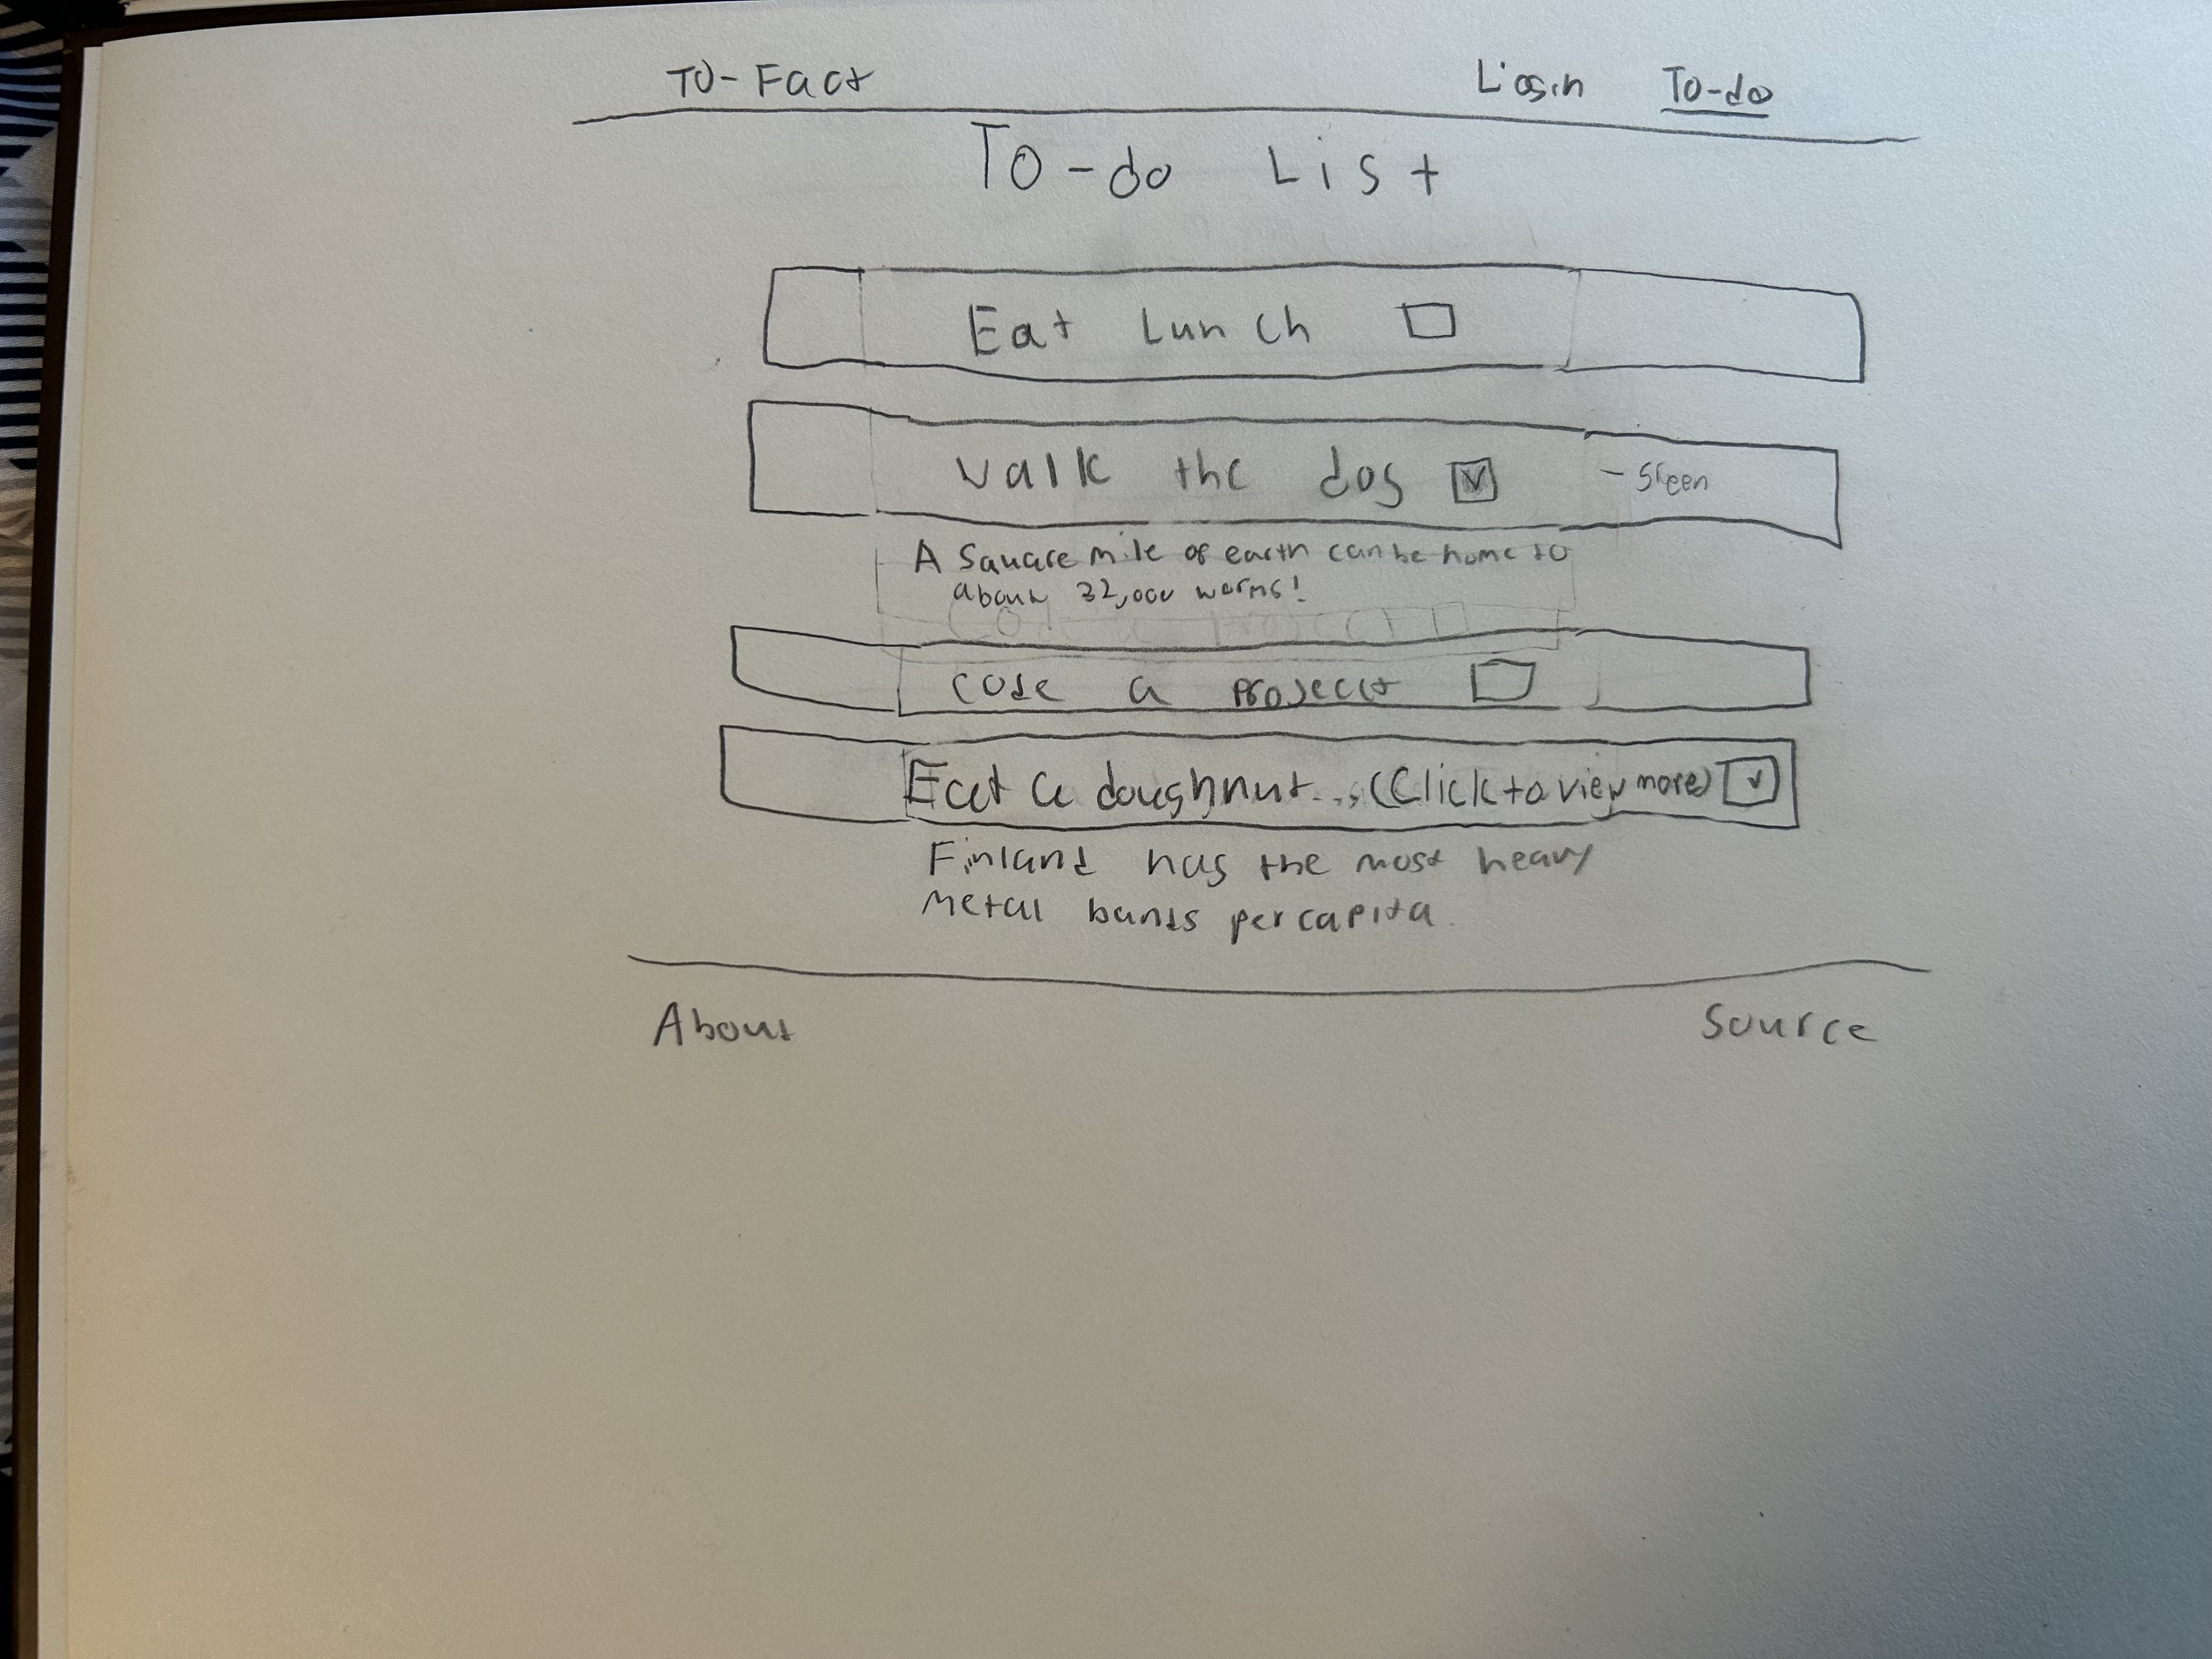 TO-Fact Login To-do
To-do List
Eat Lunch
walk the dog - green
A Square mile of earth can be home to
about 32,000 worms!
Code a project
code a project
Eat a doughnut... (Click to view more)
Finland has the most heavy
metal bands per capita.
About Source